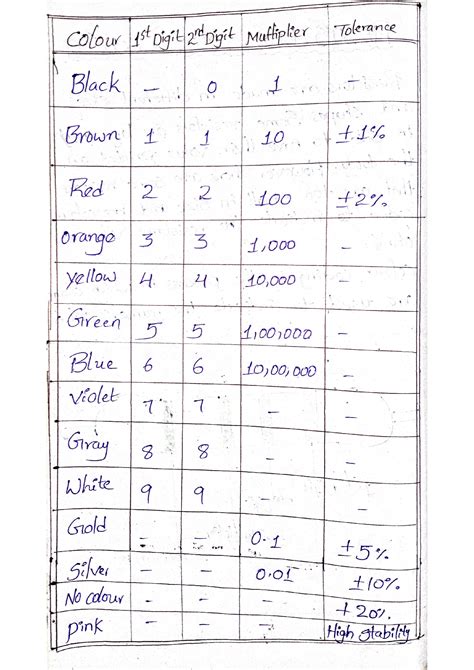 Colour 1st Digit 2nd Digit Multiplier Tolerance
Black - 0 1 -
Brown 1 1 10 ±1%
Red 2 2 100 ±2%
Orange 3 3 1,000 -
Yellow 4 4 10,000 -
Green 5 5 1,00,000 -
Blue 6 6 10,00,000 -
Violet 7 7 - -
Gray 8 8 - -
White 9 9 - -
Gold - - 0.1 ±5%
Silver - - 0.01 ±10%
No colour - - - ±20%
Pink - - - High Stability